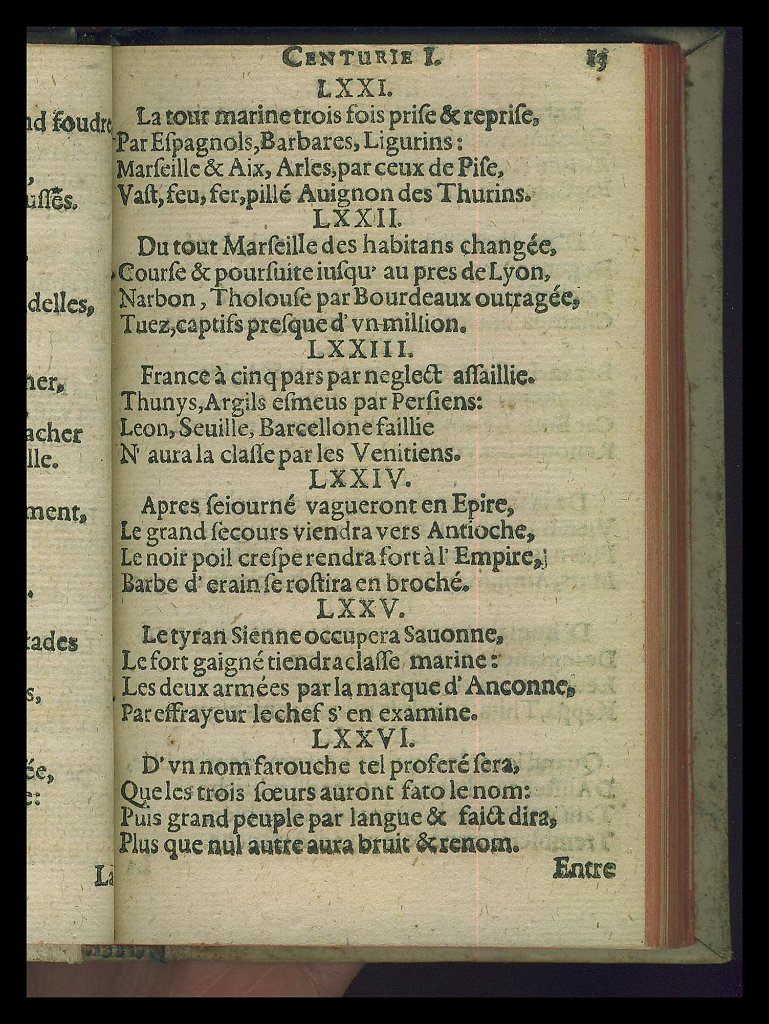 nd foudre
usses.
delles,
her,
acher
lle.
ment,
tades
s,
ée,
e:
La
CENTURIE I. 13
LXXI.
La tour marine trois fois priſe & repriſe,
Par Eſpagnols, Barbares, Ligurins:
Marſeille & Aix, Arles, par ceux de Piſe,
Vaſt, feu, fer, pillé Auignon des Thurins.
LXXII.
Du tout Marſeille des habitans changée,
Courſe & pourſuite iuſqu' au pres de Lyon,
Narbon, Tholouſe par Bourdeaux outragée,
Tuez, captifs preſque d' vn million.
LXXIII.
France à cinq pars par neglect aſſaillie.
Thunys, Argils eſmeus par Perſiens:
Leon, Seuille, Barcellone faillie
N' aura la claſſe par les Venitiens.
LXXIV.
Apres ſeiourné vagueront en Epire,
Le grand ſecours viendra vers Antioche,
Le noir poil creſpe rendra fort à l' Empire,
Barbe d' erain ſe roſtira en broché.
LXXV.
Le tyran Sienne occupera Sauonne,
Le fort gaigné tiendra claſſe marine:
Les deux armées par la marque d' Anconne,
Par effrayeur le chef s' en examine.
LXXVI.
D' vn nom farouche tel proferé ſera,
Que les trois ſœurs auront fato le nom:
Puis grand peuple par langue & faict dira,
Plus que nul autre aura bruit & renom.
Entre